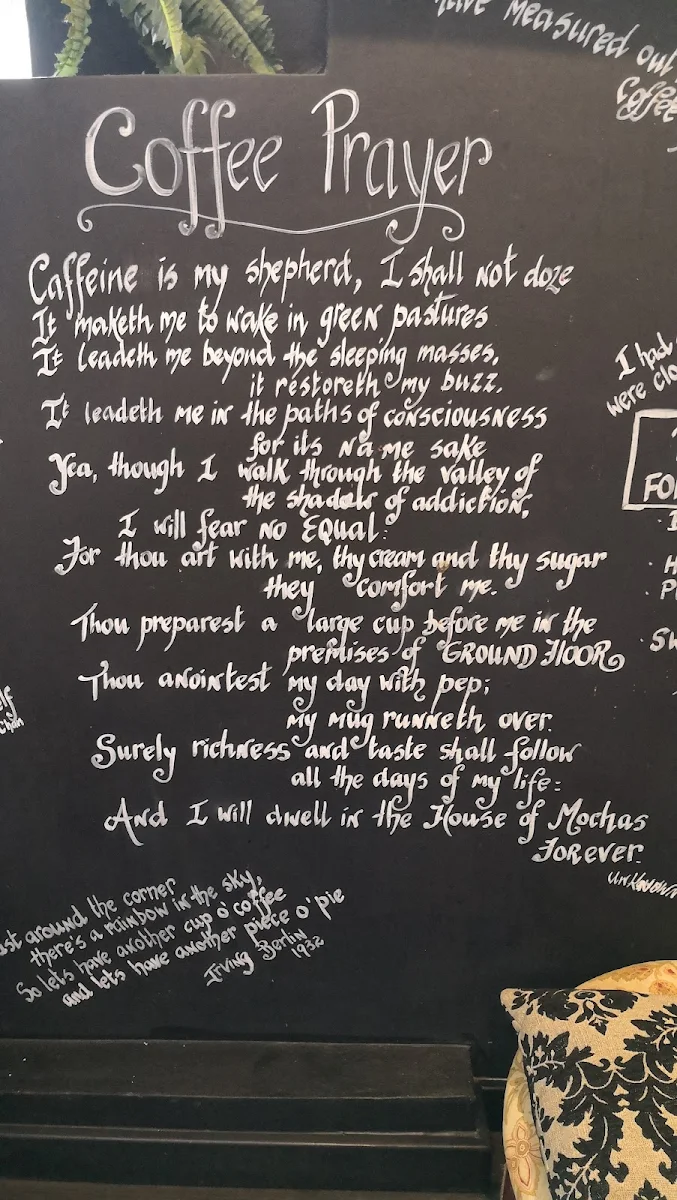 have measured out
Coffee
Coffee Prayer
Caffeine is my shepherd, I shall not doze
It maketh me to wake in green pastures
It leadeth me beyond the sleeping masses,
it restoreth my buzz.
It leadeth me in the paths of consciousness
for its name sake
Yea, though I walk through the valley of
the shadow of addiction,
I will fear no EQUAL:
For thou art with me, thy cream and thy sugar
they comfort me.
Thou preparest a large cup before me in the
premises of GROUND FLOOR
Thou anointest my day with pep;
my mug runneth over.
Surely richness and taste shall follow
all the days of my life:
And I will dwell in the House of Mochas
Forever.
unknown
ust around the corner
there's a rainbow in the sky,
So lets have another cup o' coffee
and lets have another piece o' pie
Irving Berlin
1932
I had
were clo
FO